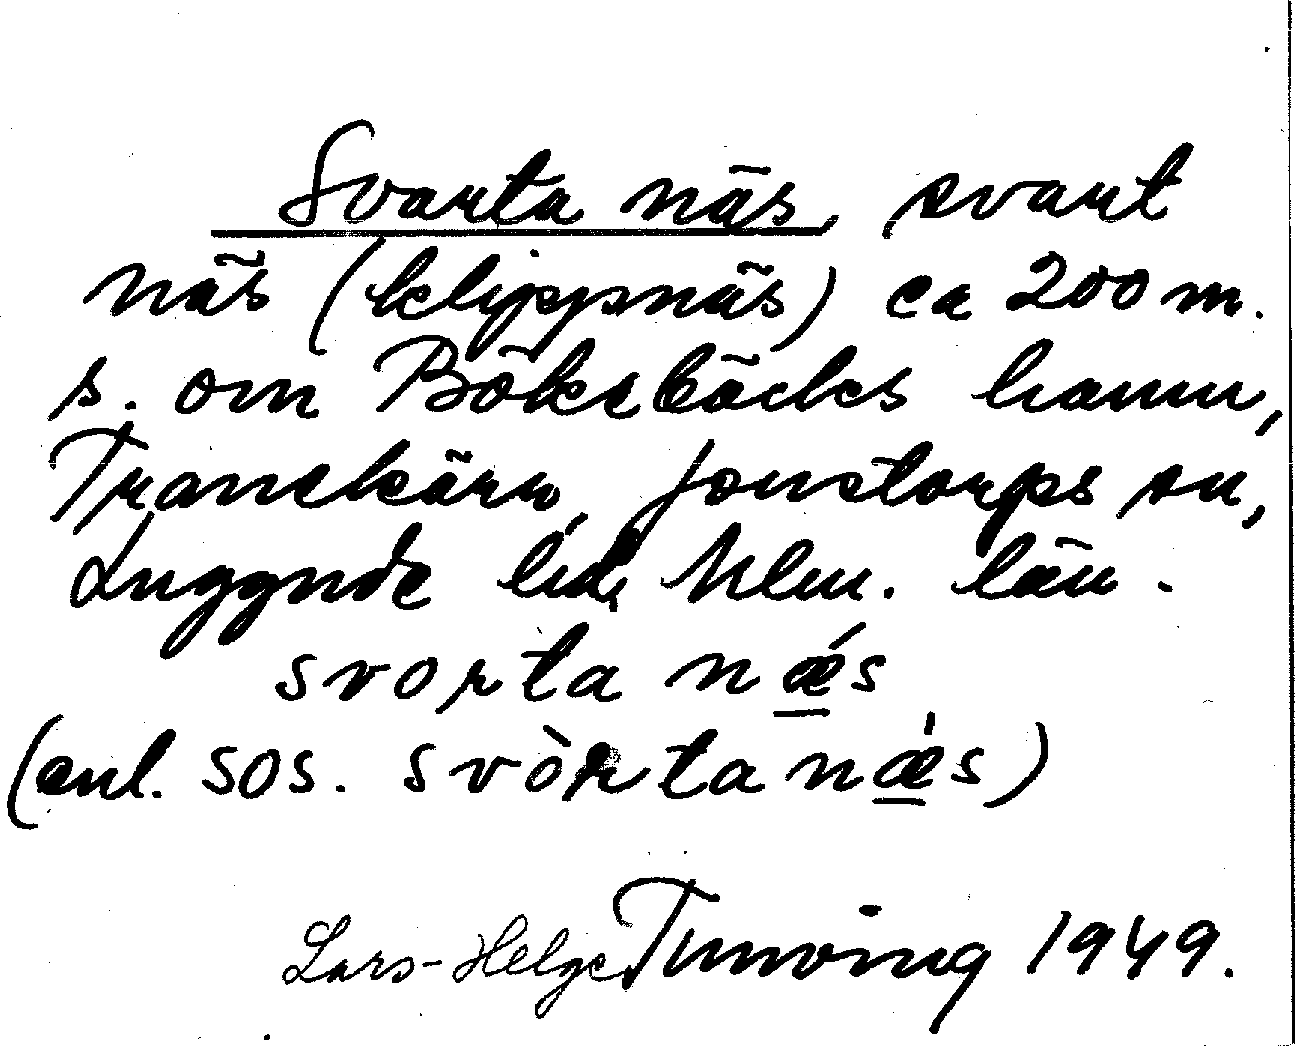 Svarta näs, svart
näs (klippnäs) ca 200 m.
s. om Bökebäcks hamn,
Tranekärr, Jonstorps sn,
Luggude hd, Mlm. län.
svorta nǽs
(enl. sos. svòrta nǽs)
Lars-Helge Tunving 1949.